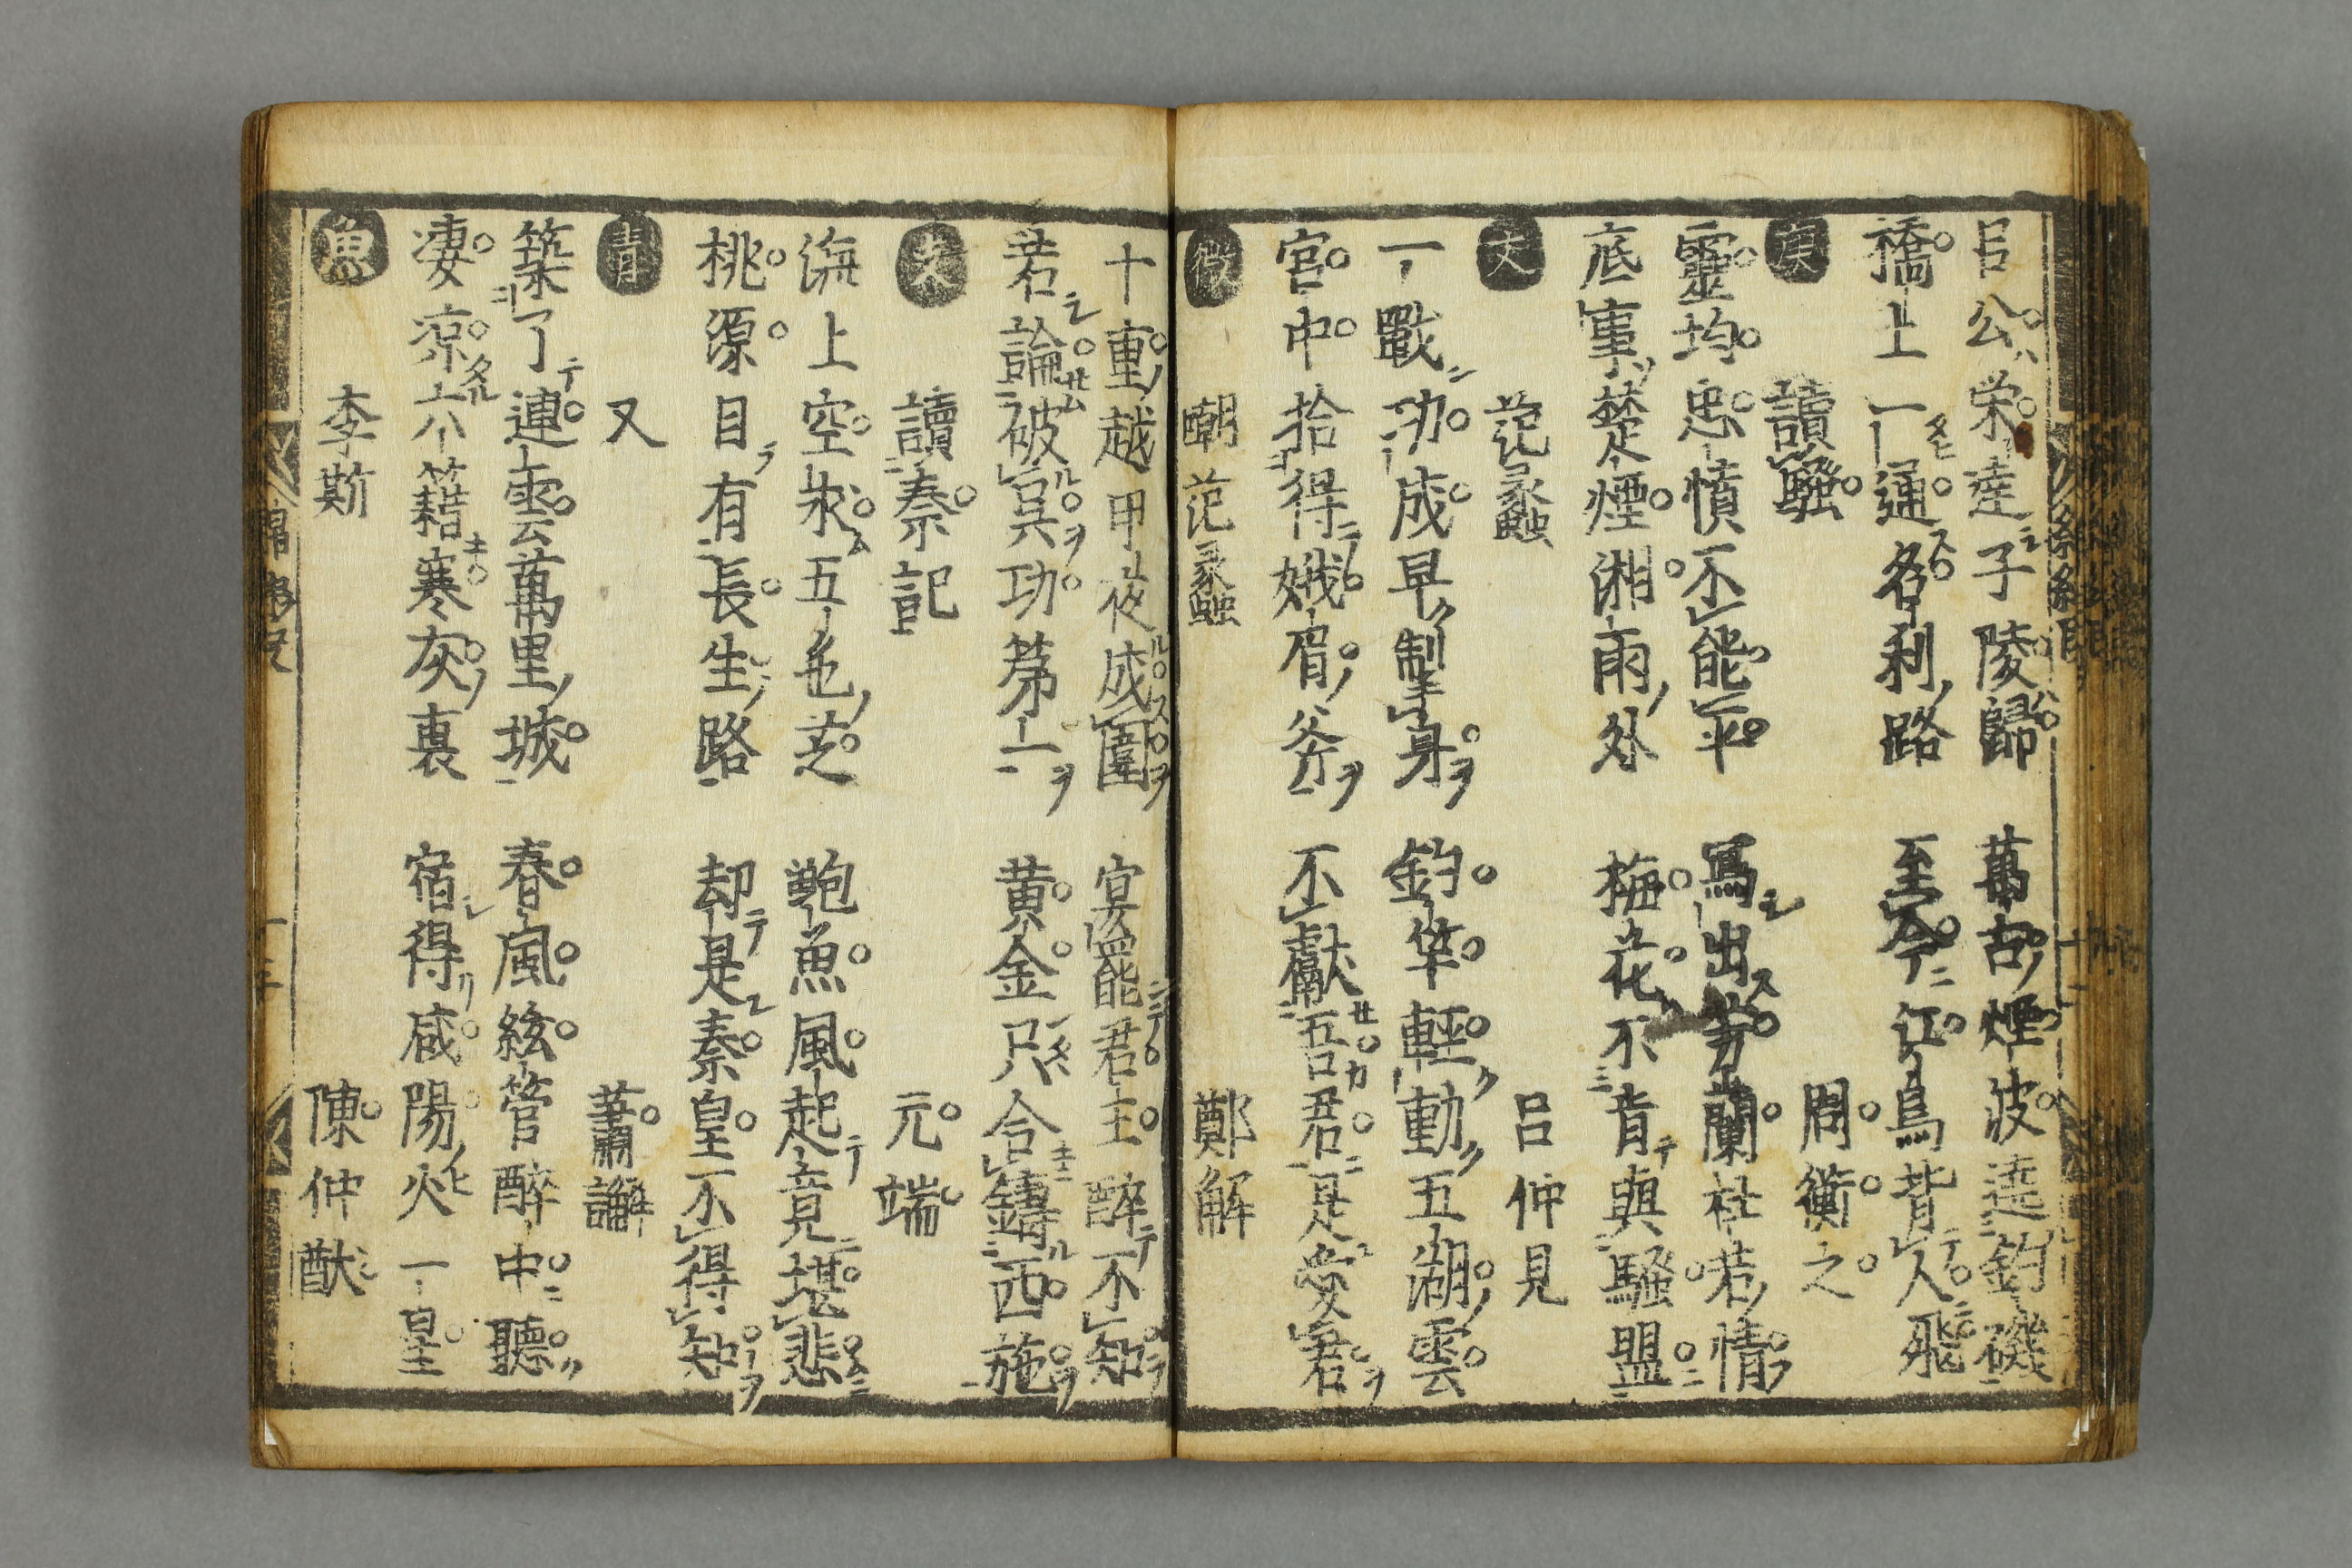 呂公栄達子陵歸　萬古煙波遶釣磯
橋上一通名利路　至今江鳥背人飛
庚　讀騒　周衡之
靈均忠憤不能平　寫出芳蘭杜若情
底事楚煙湘雨外　梅花不肯與騒盟
文　范蠡　呂仲見
一戰功成早掣身　釣竿輕動五湖雲
宮中拾得娥眉斧　不獻吾君是愛君
微　嘲范蠡　鄭解
十重越甲夜成圍　宴罷君主醉不知
若論破吳功第一　黄金只合鑄西施
支　讀秦記　元端
海上空求五色芝　鮑魚風起竟堪悲
桃源目有長生路　却是秦皇不得知
青　又　蕭澥
築了連雲萬里城　春風絃管醉中聽
凄凉六籍寒灰裏　宿得咸陽火一星
魚　李斯　陳仲猷